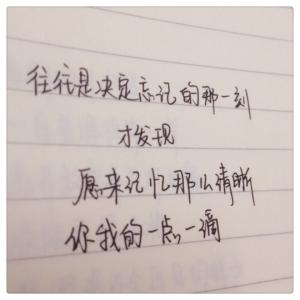 往往是决定忘记的那一刻
才发现
愿来记忆那么清晰
你我的一点一滴